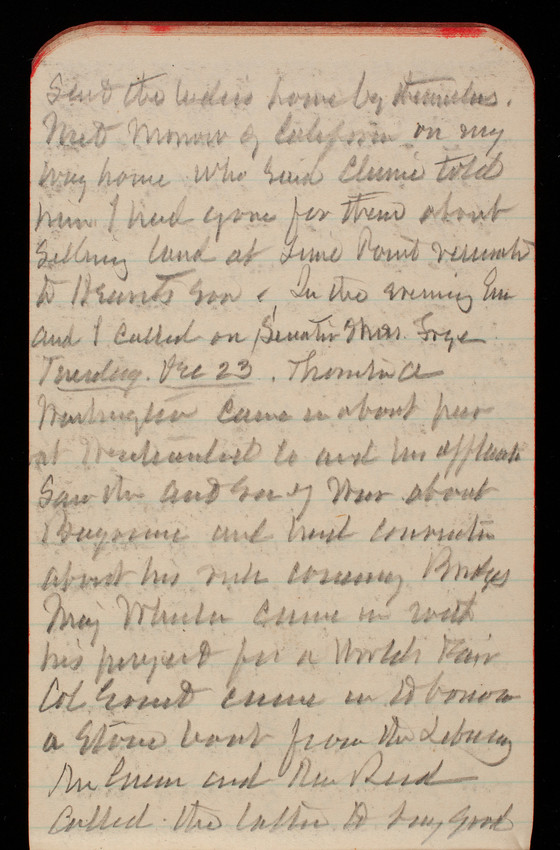 Send the ladies home by themselves.
Met Morrow of California on my
way home who said Clunie told
him I had gone for them about
selling land at Lime Point
to Hearst's son & In the evening Em
and I called on Senator & Mrs. Frye
Tuesday. Dec 23. Thornton A
Washington came in about
at to and his
Saw the of War about
and
about his rule concerning Bridges
Maj Wheeler came in with
his project for a Worlds Fair
Col Grant came in to borrow
a Stone boat from the Library
Mr Green and Mr Reed
called the latter to say good